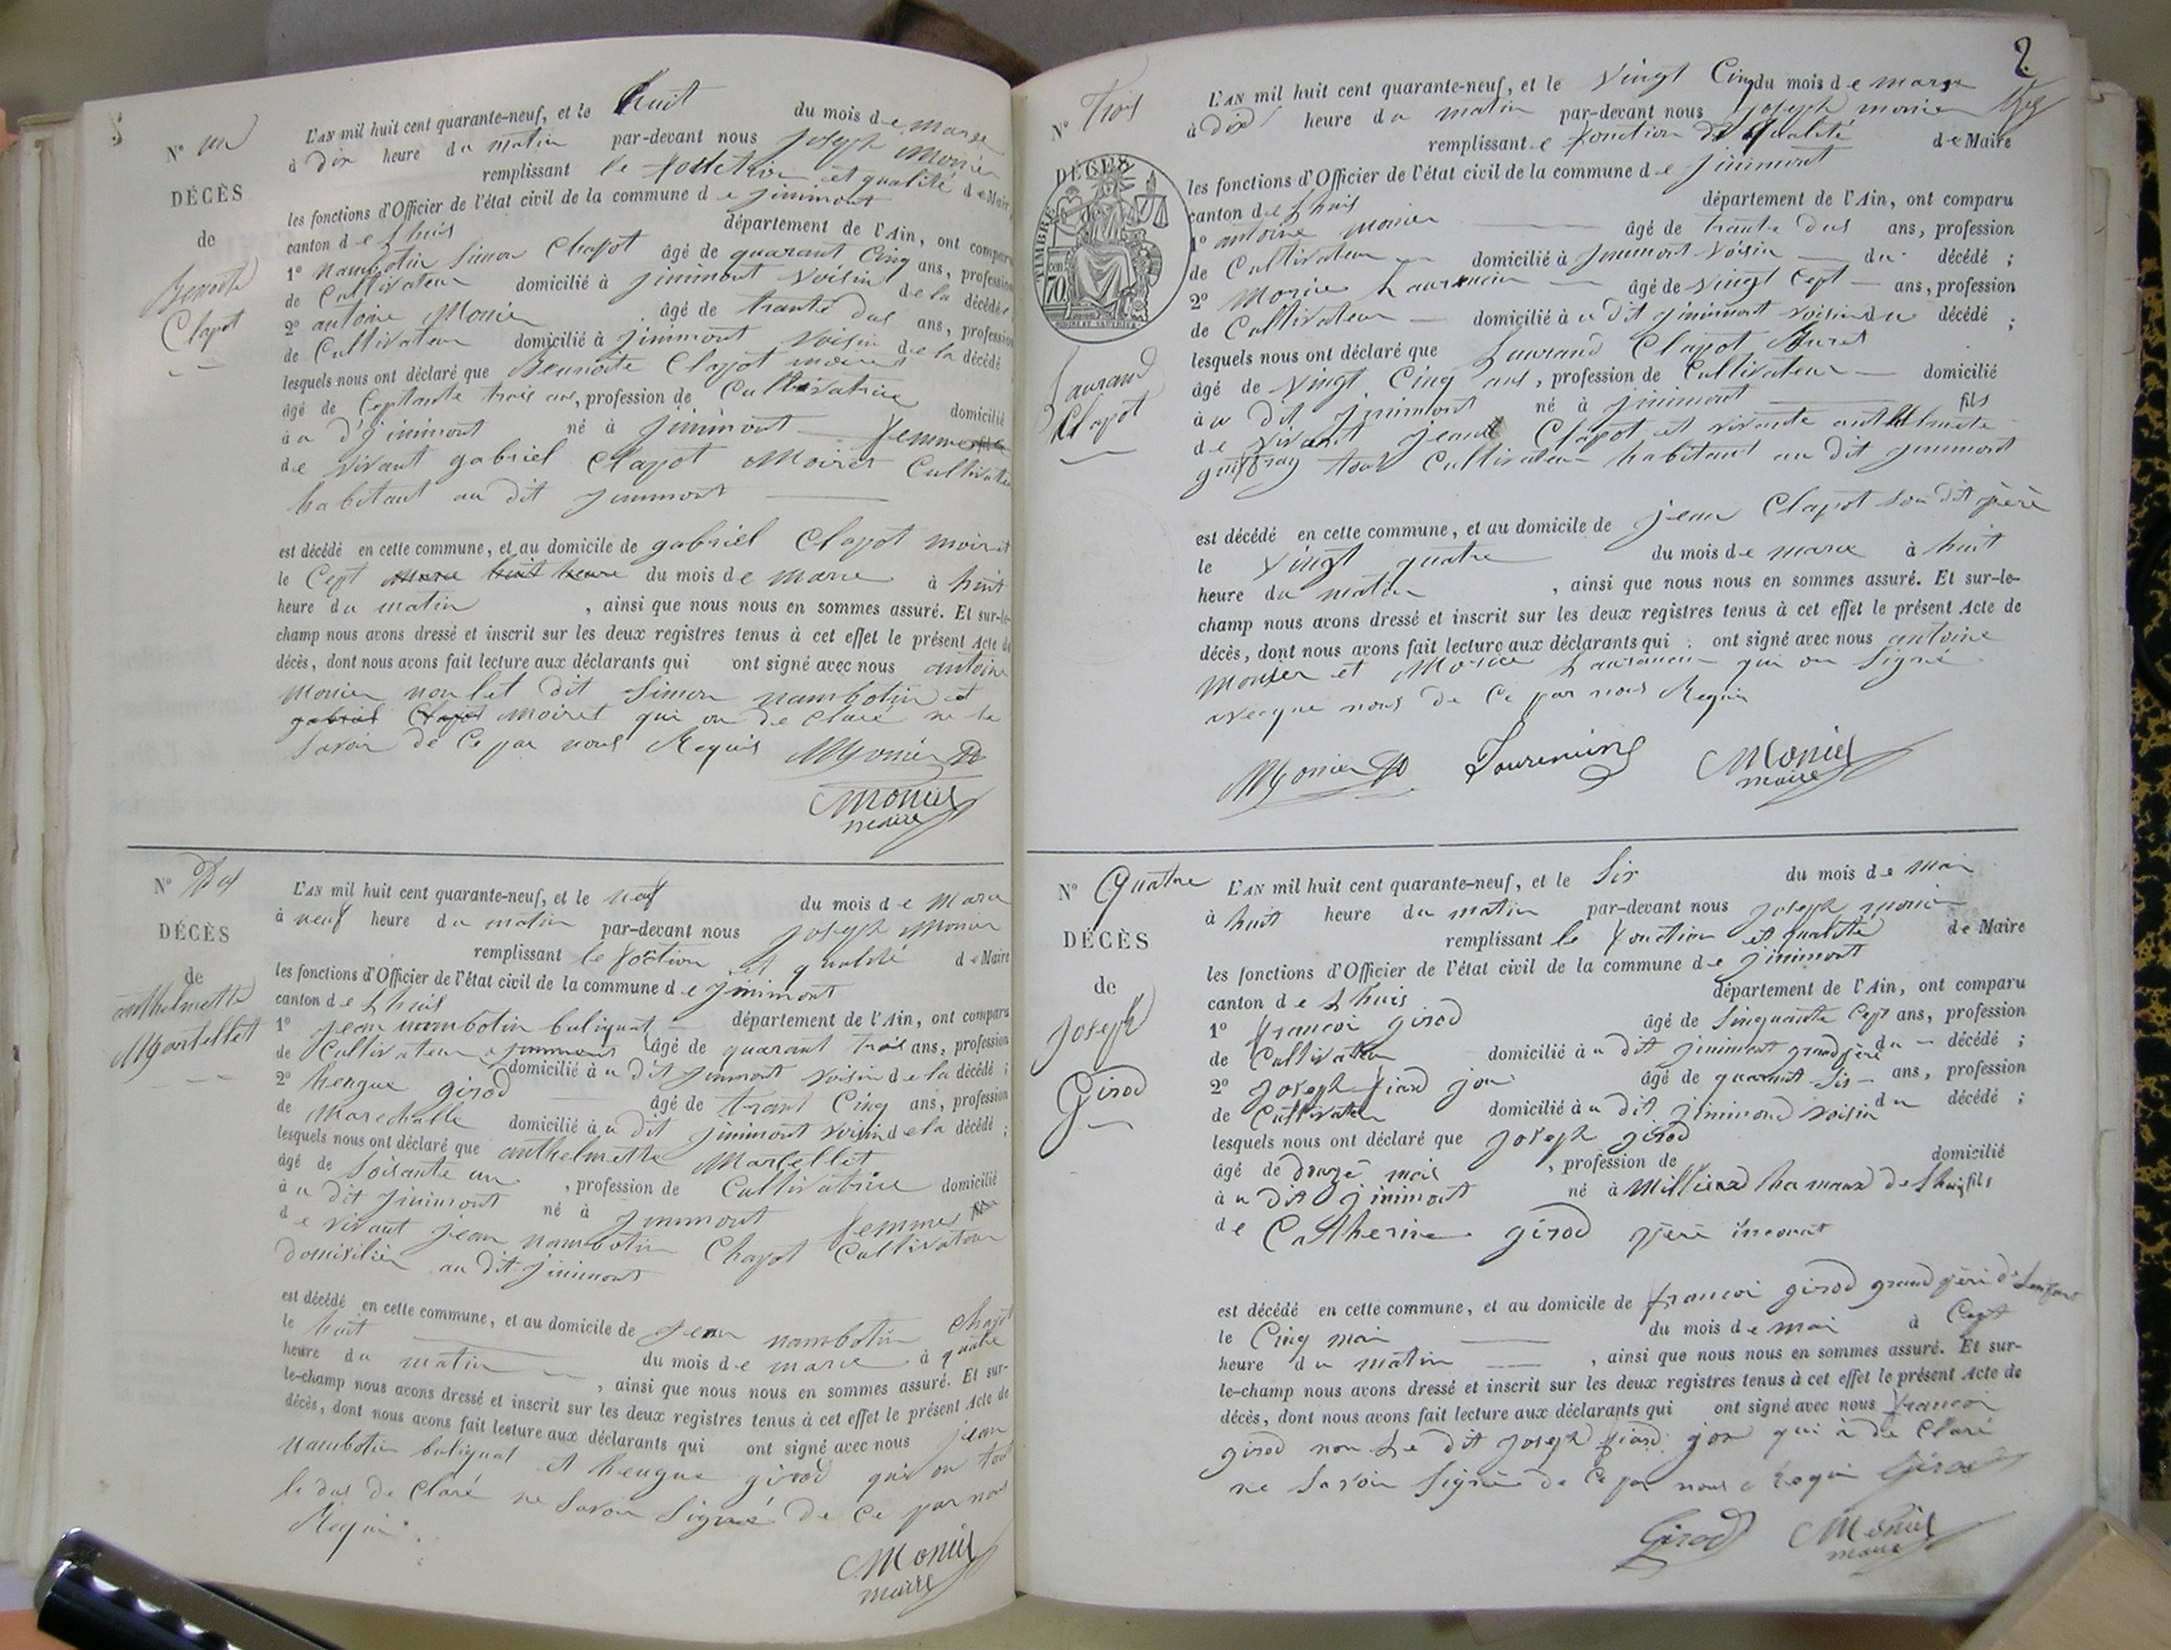 N° un
DÉCÈS
de
Benoite
Clapot
L'AN mil huit cent quarante-neuf, et le huit du mois de mars
à dix heure du matin par-devant nous joseph Monier
remplissant le fonction et qualité de Maire
les fonctions d'Officier de l'état civil de la commune de jinimont
canton de Lhuis département de l'Ain, ont comparu
1° nambotin Simon Chapot âgé de quarant Cinq ans, profession
de Cultivateur domicilié à jinimont voisin de la décédée
2° antoine Monier âgé de trante dus ans, profession
de Cultivateur domicilié à jinimont voisin de la décédé
lesquels nous ont déclaré que Clapot
âgé de Ceptante trois ans, profession de Cultivatrice domicilié
à u d' jinimont né à jinimont femme
de vivant gabriel Clapot Moiret Cultivateur
habitant au dit jinimont
est décédé en cette commune, et au domicile de gabriel Clapot moiret
le Cept du mois de mars à huit
heure du matin , ainsi que nous nous en sommes assuré. Et sur-le-
champ nous avons dressé et inscrit sur les deux registres tenus à cet effet le présent Acte de
décès, dont nous avons fait lecture aux déclarants qui ont signé avec nous antoine
Monier non let dit Simon nambotin et
gabriel Clapot moiret qui on de claré ne le
savoir de Ce par nous Requis Monier
Monier
maire
N° Dus
DÉCÈS
de
anthelmette
Martellet
L'AN mil huit cent quarante-neuf, et le neuf du mois de mars
à neuf heure du matin par-devant nous joseph Monier
remplissant le foction et qualité de Maire
les fonctions d'Officier de l'état civil de la commune de jinimont
canton de Lhuis département de l'Ain, ont comparu
1° jean nambotin buliquat âgé de quarant trois ans, profession
de Cultivateur domicilié à u dit jinimont voisin de la décédé ;
2° hengue girod âgé de trant Cinq ans, profession
de Marechalle domicilié à u dit jinimont voisin de la décédé ;
lesquels nous ont déclaré que anthelmette Martellet
âgé de Soisante un , profession de Cultivatrice domicilié
à u dit jinimont né à jinimont femme
de vivant jean nambotin Chapot Cultivateur
domisilier au dit jinimont
est décédé en cette commune, et au domicile de jean nambotin Chapot
le huit du mois de mars à quatre
heure du matin , ainsi que nous nous en sommes assuré. Et sur-
le-champ nous avons dressé et inscrit sur les deux registres tenus à cet effet le présent Acte de
décès, dont nous avons fait lecture aux déclarants qui ont signé avec nous jean
nambotin buliquat et hengue girod qui on tout
le dus de Claré ne Savoir Signé de Ce par nous
Requi
Monier
maire
2
N° Trois
DÉCÈS
TIMBRE
70
Laurand
Clapot
L'AN mil huit cent quarante-neuf, et le vingt Cinq du mois de mars
à dix heure du matin par-devant nous joseph monier
remplissant le fonction de qualité de Maire
les fonctions d'Officier de l'état civil de la commune de jinimont
canton de Lhuis département de l'Ain, ont comparu
1° antoine monier âgé de trante dus ans, profession
de Cultivateur domicilié à jinimont voisin du décédé ;
2° Monier Laurencin âgé de vingt Cept ans, profession
de Cultivateur domicilié à u dit jinimont voisin du décédé ;
lesquels nous ont déclaré que Laurand Clapot
âgé de vingt Cinq ans, profession de Cultivateur domicilié
à u dit jinimont né à jinimont fils
de vivant jean Clapot et vivante anthelmete
tous Cultivateur habitant au dit jinimont
est décédé en cette commune, et au domicile de jean Clapot son dit père
le vingt quatre du mois de mars à huit
heure du matin , ainsi que nous nous en sommes assuré. Et sur-le-
champ nous avons dressé et inscrit sur les deux registres tenus à cet effet le présent Acte de
décès, dont nous avons fait lecture aux déclarants qui ont signé avec nous antoine
Monier et Monier Laurencin qui on Signé
avecque nous de Ce par nous Requis
Monier Monier
maire
N° Quatre
DÉCÈS
de
Joseph
Girod
L'AN mil huit cent quarante-neuf, et le Six du mois de mai
à huit heure du matin par-devant nous joseph monier
remplissant le fonction et qualité de Maire
les fonctions d'Officier de l'état civil de la commune de jinimont
canton de Lhuis département de l'Ain, ont comparu
1° francoi girod âgé de Sinquante Cept ans, profession
de Cultivateur domicilié à u dit jinimont grand père du décédé ;
2° joseph jou âgé de quarant Sis ans, profession
de Cultivateur domicilié à u dit jinimond voisin du décédé ;
lesquels nous ont déclaré que joseph girod
âgé de mois , profession de domicilié
à u dit jinimont né à hamaux de Lhuis fils
de Catherine girod père inconut
est décédé en cette commune, et au domicile de francoi girod grand père de Lenfant
le Cinq mai du mois de mai à Cept
heure du matin , ainsi que nous nous en sommes assuré. Et sur-
le-champ nous avons dressé et inscrit sur les deux registres tenus à cet effet le présent Acte de
décès, dont nous avons fait lecture aux déclarants qui ont signé avec nous francoi
girod non Le dit joseph jou qui à de Claré
ne Savoir Signé de Ce par nous Requi
Girod Monier
maire